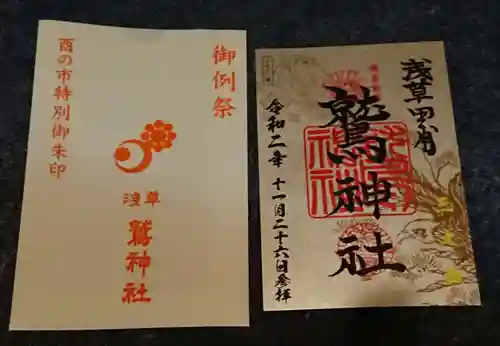 御例祭
酉の市特別御朱印
浅草
鷲神社
浅草田圃
鷲神社
令和二年十一月二十六日参拝